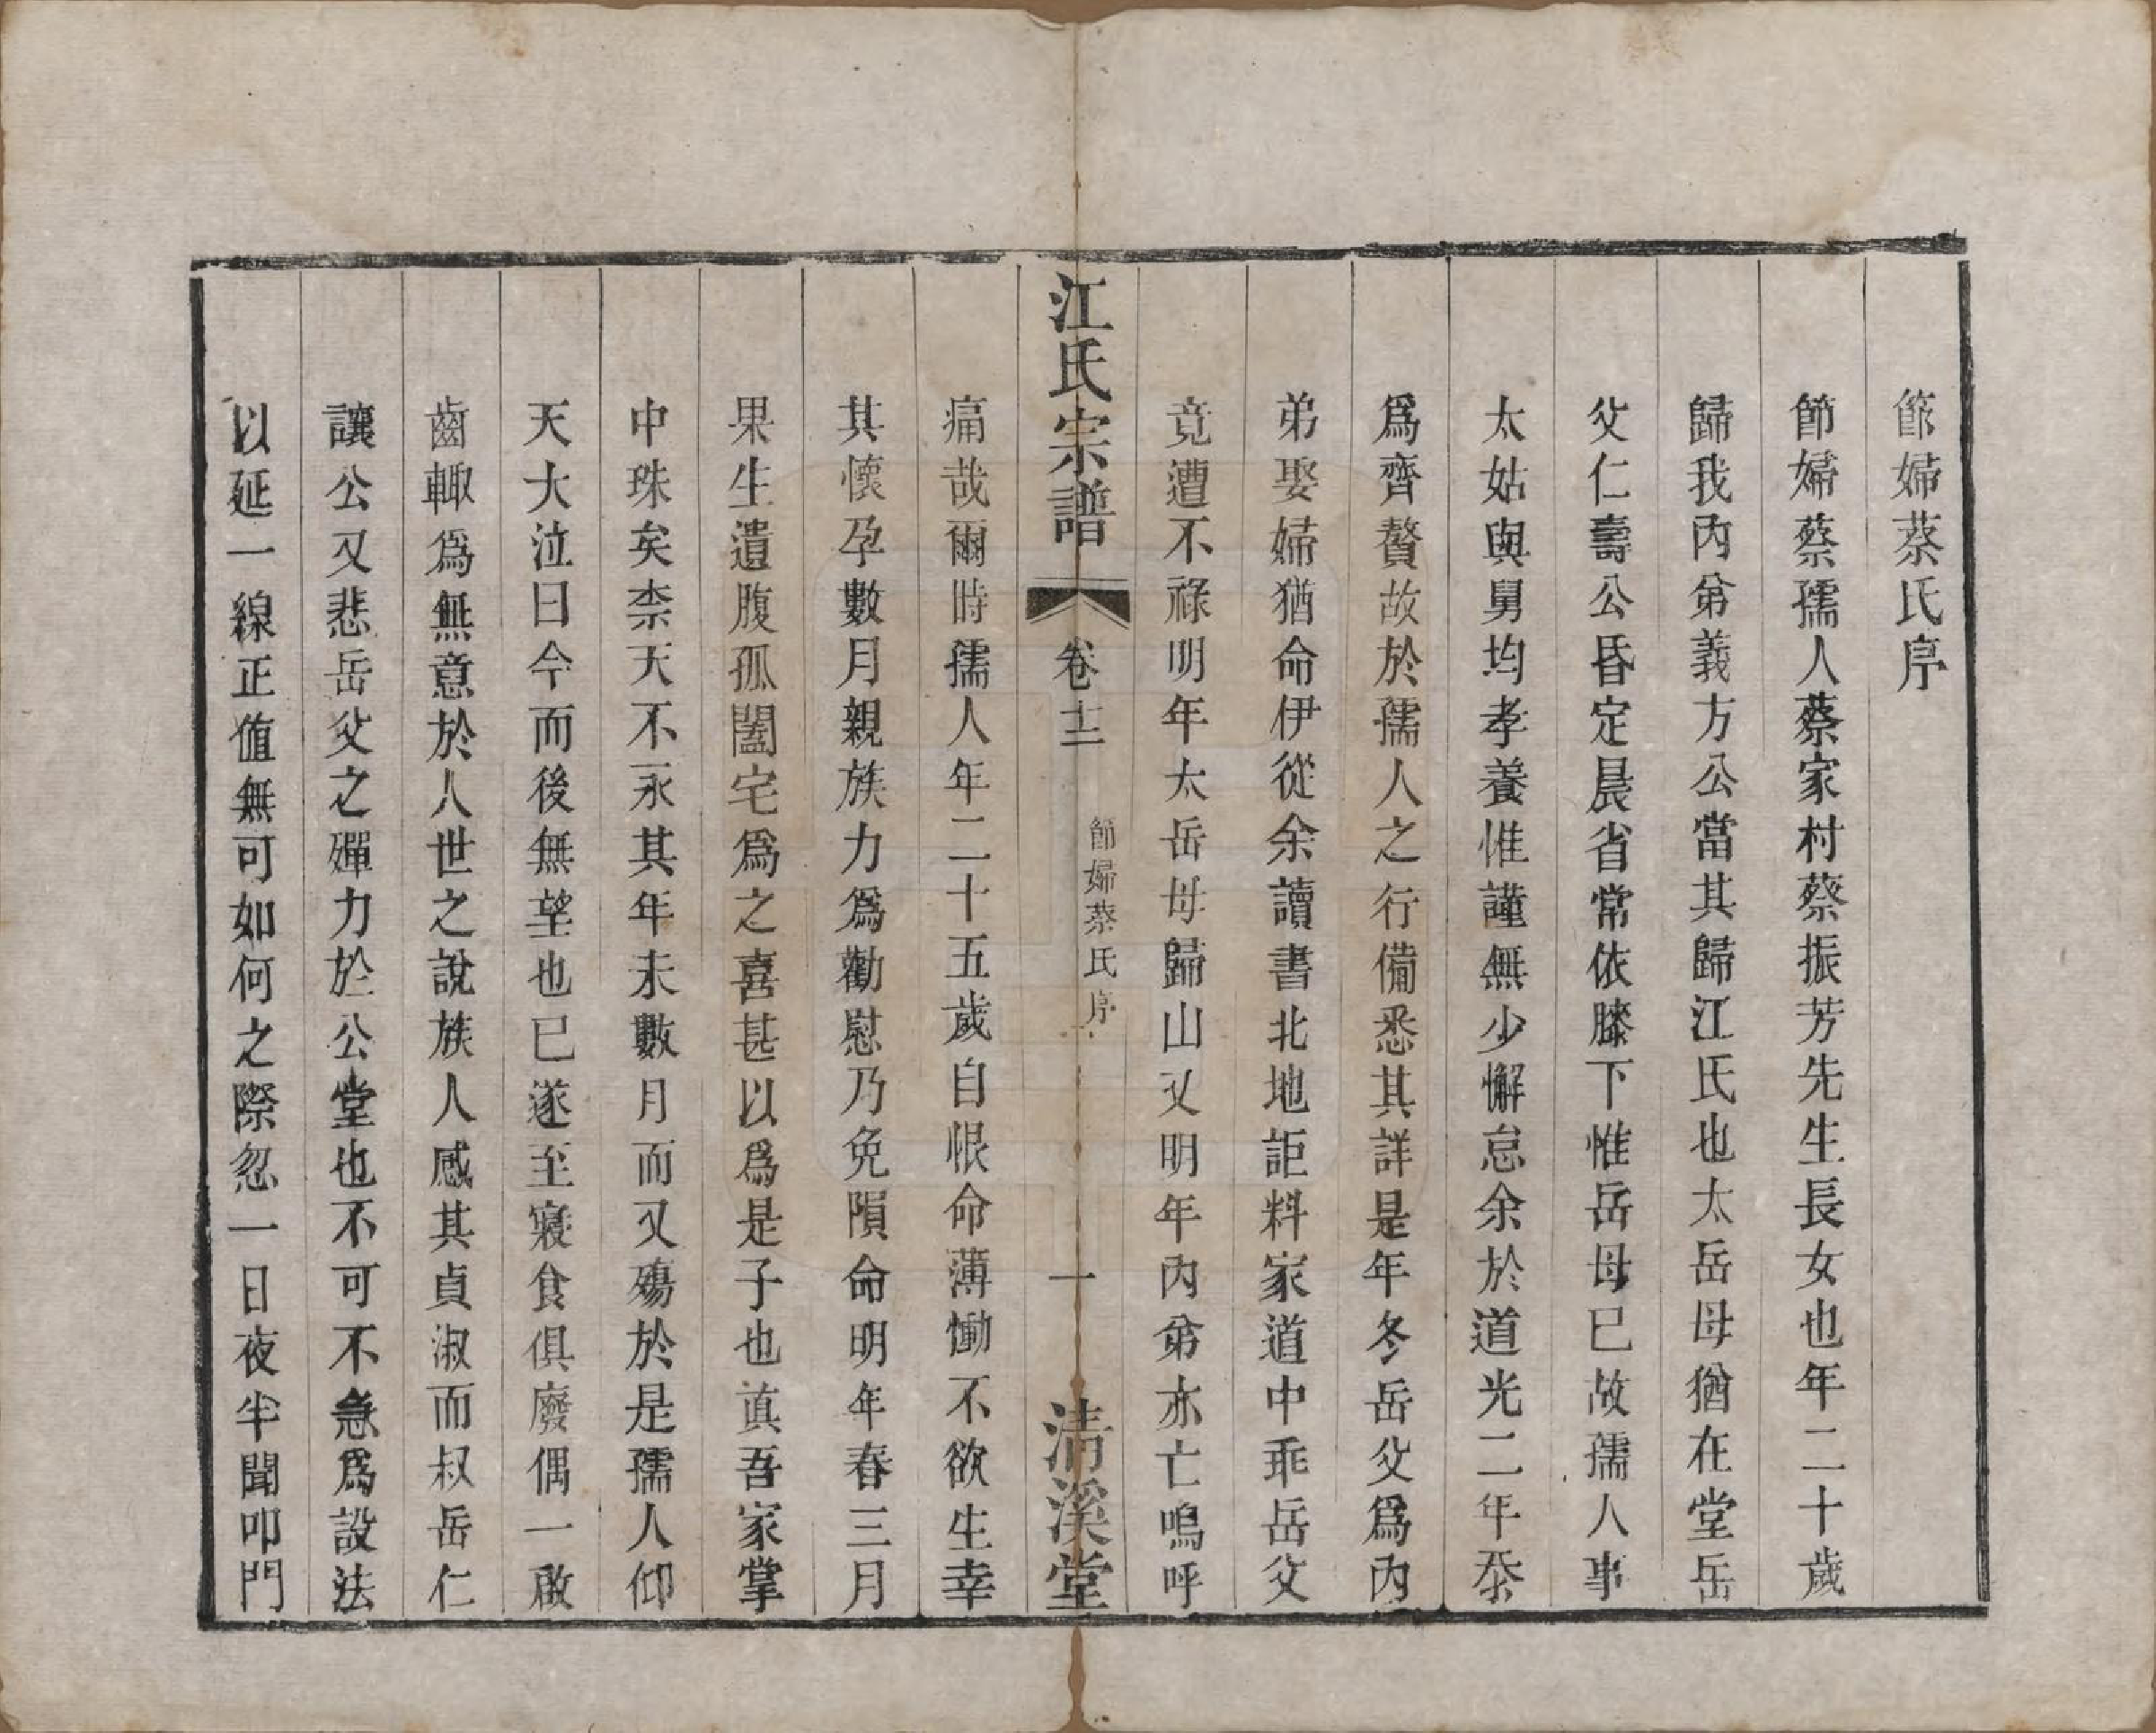 節婦蔡氏序
節婦蔡孺人蔡家村蔡振芳先生長女也年二十歲
歸我內弟義方公當其歸江氏也太岳母猶在堂岳
父仁壽公昏定晨省常依膝下惟岳母已故孺人事
太姑與舅均孝養惟謹無少懈怠余於道光二年忝
爲齊贅故於孺人之行備悉其詳是年冬岳父爲內
弟娶婦猶命伊從余讀書北地詎料家道中乖岳父
竟遭不祿明年太岳母歸山又明年內弟亦亡嗚呼
江氏宗譜 卷十二 節婦蔡氏序 一 清溪堂
痛哉爾時孺人年二十五歲自恨命薄慟不欲生幸
其懷孕數月親族力爲勸慰乃免隕命明年春三月
果生遺腹孤闔宅爲之喜甚以爲是子也眞吾家掌
中珠矣柰天不永其年未數月而又殤於是孺人仰
天大泣曰今而後無望也已遂至寢食俱廢偶一啟
齒輙爲無意於人世之說族人感其貞淑而叔岳仁
讓公又悲岳父之殫力於公堂也不可不急爲設法
以延一線正值無可如何之際忽一日夜半聞叩門